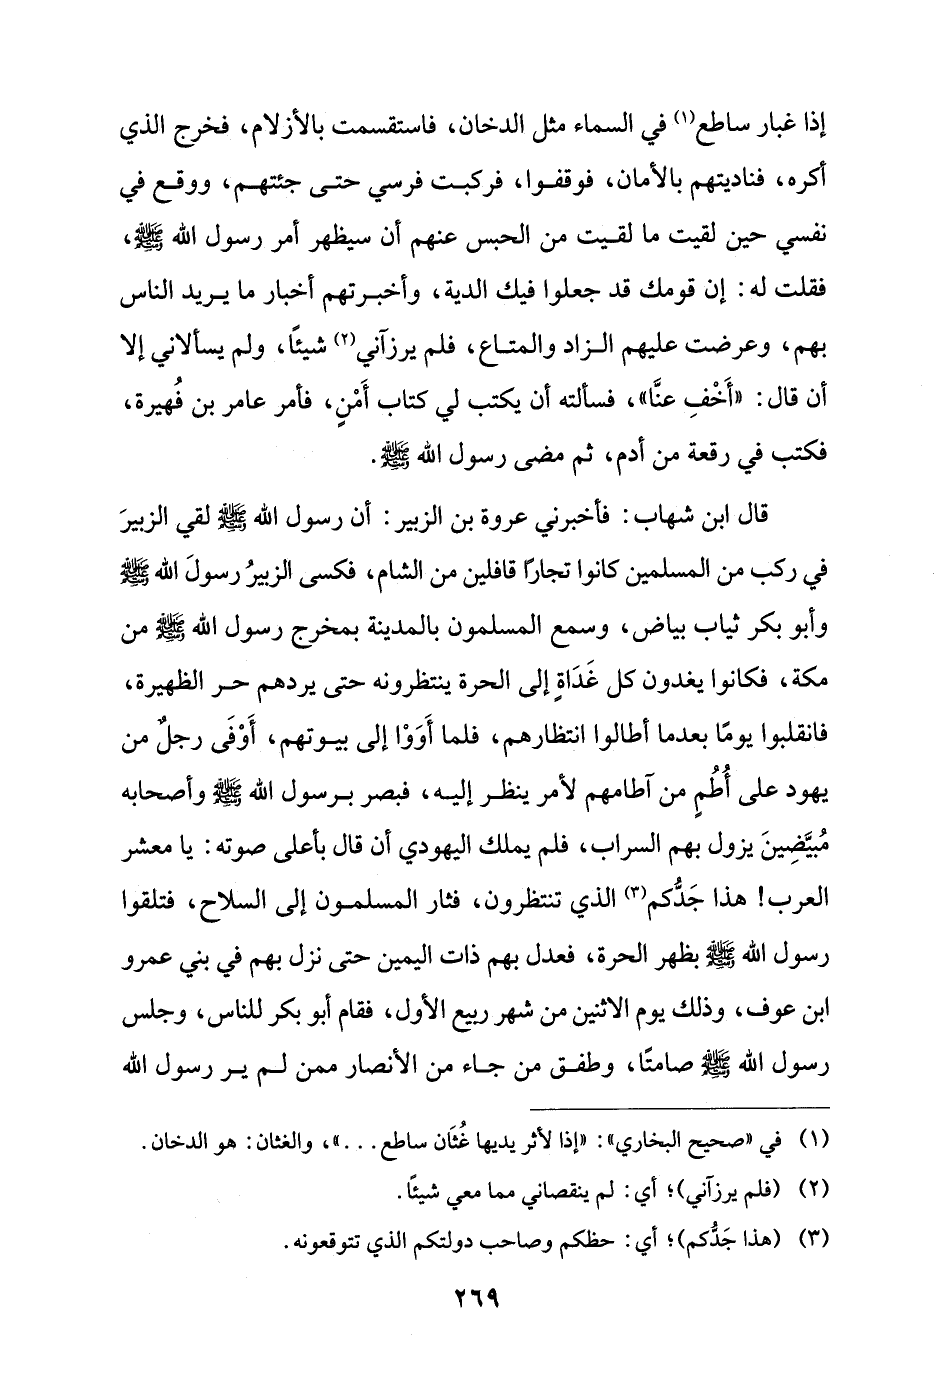 إذا غبار ساطع(١) في السماء مثل الدخان، فاستقسمت بالأزلام، فخرج الذي
أكره، فناديتهم بالأمان، فوقفـوا، فركبـت فرسي حتـى جئتهـم، ووقـع في
نفسي حين لقيت ما لقـيت من الحبس عنهم أن سيظهر أمر رسول الله ﷺ،
فقلت له: إن قومك قد جعلوا فيك الدية، وأخبـرتهم أخبار ما يـريد الناس
بهم، وعرضت عليهم الـزاد والمتـاع، فلم يرزآني(٢) شيئًا، ولم يسألاني إلا
أن قال: «أَخْفِ عنَّا»، فسألته أن يكتب لي كتاب أَمْنٍ، فأمر عامر بن فُهيرة،
فكتب في رقعة من أدم، ثم مضى رسول الله ﷺ.
قال ابن شهاب: فأخبرني عروة بن الزبير: أن رسول الله ﷺ لقي الزبيرَ
في ركب من المسلمين كانوا تجارًا قافلين من الشام، فكسى الزبيرُ رسولَ الله ﷺ
وأبو بكر ثياب بياض، وسمع المسلمون بالمدينة بمخرج رسول الله ﷺ من
مكة، فكانوا يغدون كل غَدَاةٍ إلى الحرة ينتظرونه حتى يردهم حـر الظهيرة،
فانقلبوا يومًا بعدما أطالوا انتظارهم، فلما أَوَوْا إلى بيـوتهم، أَوْفَى رجلٌ من
يهود على أُطُمٍ من آطامهم لأمر ينظـر إليـه، فبصر بـرسول الله ﷺ وأصحابه
مُبيَّضِينَ يزول بهم السراب، فلم يملك اليهودي أن قال بأعلى صوته: يا معشر
العرب! هذا جَدُّكم(٣) الذي تنتظرون، فثار المسلمـون إلى السلاح، فتلقوا
رسول الله ﷺ بظهر الحرة، فعدل بهم ذات اليمين حتى نزل بهم في بني عمرو
ابن عوف، وذلك يوم الاثنين من شهر ربيع الأول، فقام أبو بكر للناس، وجلس
رسول الله ﷺ صامتًا، وطفـق من جـاء من الأنصار ممن لـم يـر رسول الله
(١) في «صحيح البخاري»: «إذا لأثر يديها غُثَان ساطع...»، والغثان: هو الدخان.
(٢) (فلم يرزآني)؛ أي: لم ينقصاني مما معي شيئًا.
(٣) (هذا جَدُّكم)؛ أي: حظكم وصاحب دولتكم الذي تتوقعونه.
٢٦٩